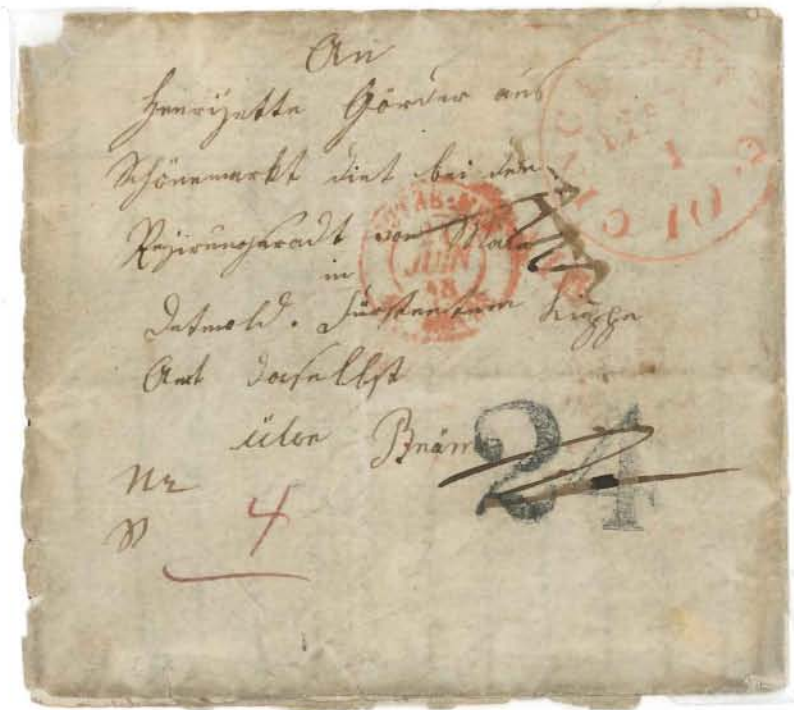 An
Henrijette Görder aus
Schönemarkt diet bei den
Regirungsradt von Mela
in
Detmold. Fürstentum Lippe
Amt daselbst
über Bräm
24
Nr
4
CINCINNATI
1
O.
JUIN
48